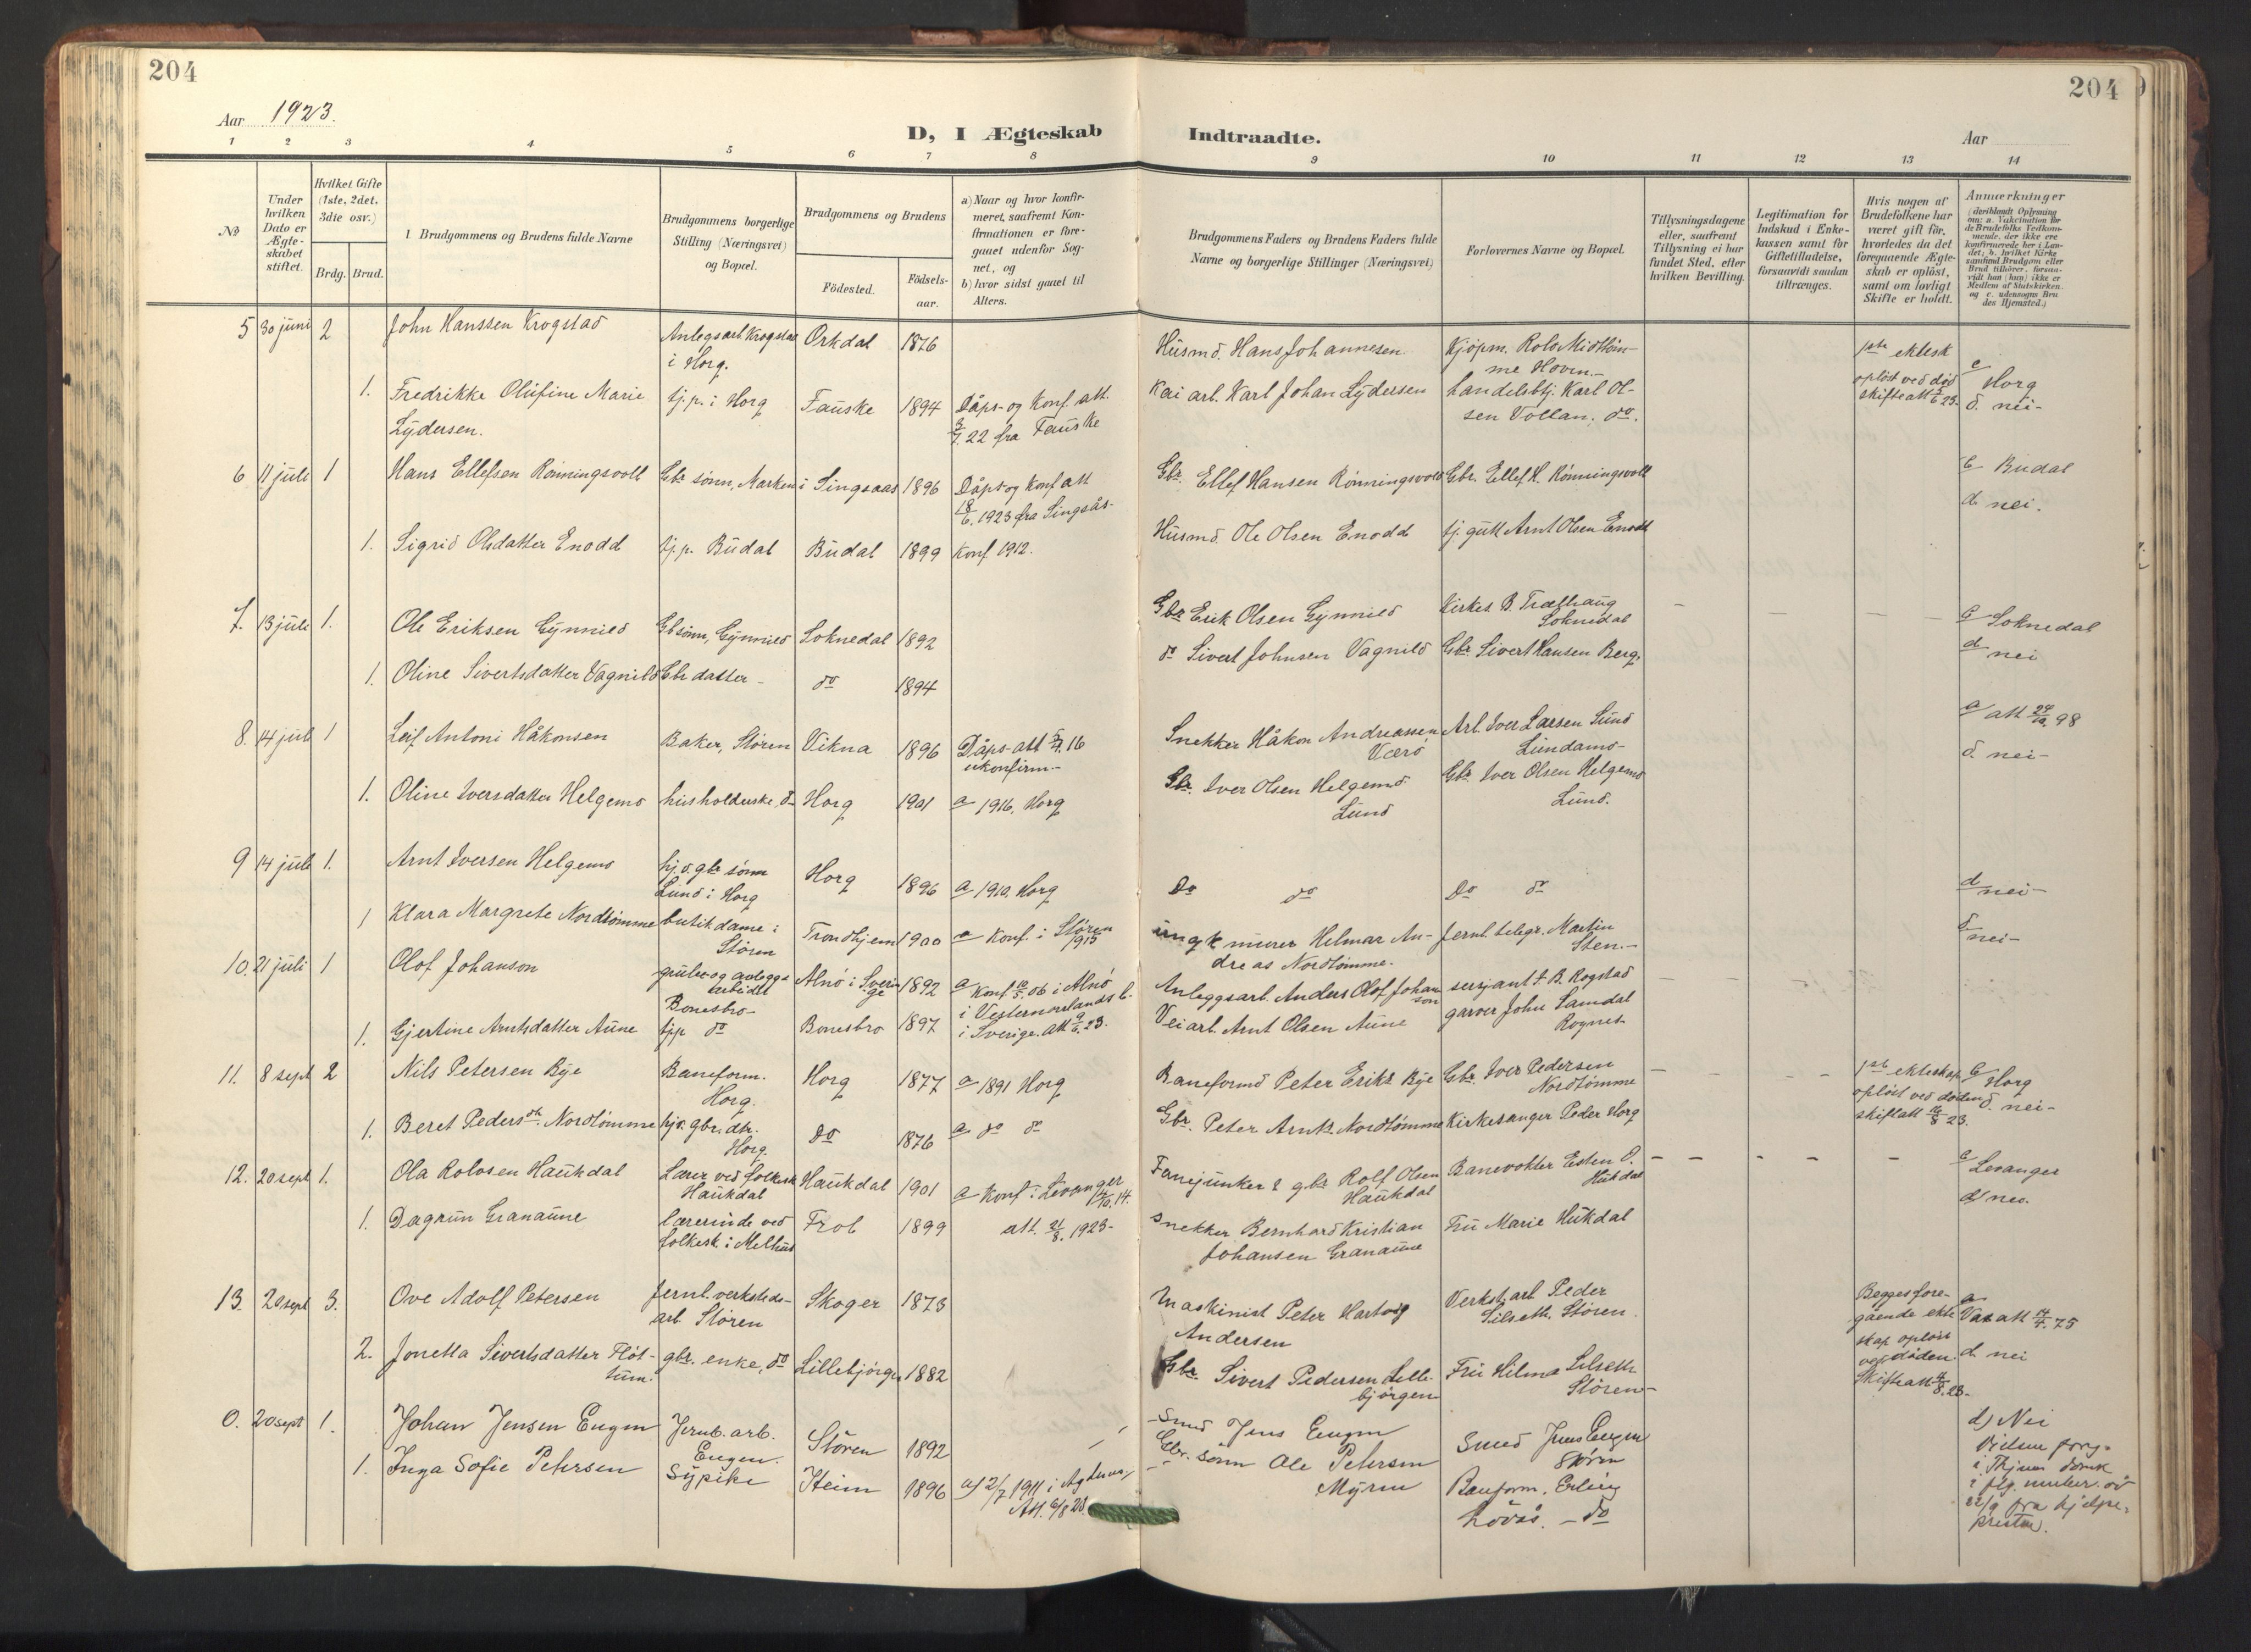 204
204
Aar 1923.
D, I Ægteskab Indtraadte.
Aar
1 2 3 4 5 6 7 8 9 10 11 12 13 14
No
Under hvilken Dato er Ægte-skabet stiftet.
Hvilket Gifte (1ste, 2det. 3die osv.)
Brdg. Brud.
Brudgommens og Brudens fulde Navne
Brudgommens borgerlige Stilling (Næringsvei) og Bopæl.
Brudgommens og Brudens
Födested.
Födsels-aar.
a) Naar og hvor konfir-meret, saafremt Kon-firmationen er fore-gaaet udenfor Sog-net, og
b) hvor sidst gaaet til Alters.
Brudgommens Faders og Brudens Faders fulde Navne og borgerlige Stillinger (Næringsvei)
Forlovernes Navne og Bopæl.
Tillysningsdagene eller, saafremt Tillysning ei har fundet Sted, efter hvilken Bevilling.
Legitimation for Indskud i Enke-kassen samt for Giftetilladelse, forsaavidt saadan tiltrænges.
Hvis nogen af Brudefolkene har været gift för, hvorledes da det foregaaende Ægte-skab er oplöst, samt om lovligt Skifte er holdt.
Anmærkninger (deriblandt Oplysning om: a. Vakcination for de Brudefolks Vedkom-mende, der ikke ere konfirmerede her i Lan-det; b. hvilket Kirke-samfund Brudgom eller Brud tilhörer, forsaa-vidt han (hun) ikke er Medlem af Statskirken. og c. udensogns Bru-des Hjemsted.)
5 30 juni 2 John Hanssen Krogstad Anlegsarb. Krogstad i Horg. Orkdal 1876 Husmd. Hans Johannesen. Kjøpm. Rolo Midttøm-me Hoven.- 1ste ektesk oplöst ved død skifteatt 23. c Horg
1. Fredrikke Olufine Marie Lydersen. tj.p. i Horg Fauske 1894 Dåps- og Konf. att. 3/7. 22 fra Fauske Kai arb. Karl Johan Lydersen handelsbtj. Karl Ol-sen Vollan. do. d. nei-
6 11 juli 1 Hans Ellefsen Rönningsvoll Gbr sønn, Marken i Singsaas 1896 Dåps og Konf att 18/6. 1923 fra Singsås- Gbr. Ellef Hansen Rönningsvold Gbr. Ellef H. Rönningsvoll c Budal
1. Sigrid Olsdatter Enodd tj.p. Budal Budal 1899 Konf. 1912. Husmd. Ole Olsen Enodd tj. gutt Arnt Olsen Enodd d. nei.
7. 13 juli 1. Ole Eriksen Gynnild Gb sønn, Gynnild Soknedal 1892 Gbr Erik Olsen Gynnild Kirkes. B. Træthaug Soknedal c Soknedal
1. Oline Sivertsdatter Vagnild Gbr datter - do 1894 do Sivert Johnsen Vagnild Gbr Sivert Hansen Berg. d nei
8. 14 juli 1 Leif Antoni Håkonsen Baker, Støren Vikna 1896 Dåps-att 16 ukonfirm.- Snekker Håkon Andreassen Værö Arb. Iver Larsen Lund Lundamo- a att 24/10. 98
1. Oline Iversdatter Helgemo husholderske, do Horg 1901 a 1916. Horg Gbr. Iver Olsen Helgemo Lund Gbr. Iver Olsen Helgemo Lund. d. nei-
9 14 juli 1. Arnt Iversen Helgemo hj.v. gbr sönn Lund i Horg Horg 1896 a 1910. Horg Do do Do do d nei-
1 Klara Margrete Nordtömme butikdame i Støren Trondhjem 1900 a Konf. i Støren 1915 ungk murer Helmar An-dreas Nordtömme. Jernb. telegr. Martin Sten.- d nei-
10. 21 juli 1 Olof Johanson grube og anleggs arbeider Bonesbro- Alnö i Sverige 1892 a Konf. 06 i Alnö i Vesternorrlands l. i Sverige. Att 23. Anleggsarb. Anders Olof Johanson sersjant F. B. Rogstad
1. Gjertine Arntsdatter Aune tjp do Bonesbro 1897 Veiarb. Arnt Olsen Aune garver John Samdal Rognes
11. 8 sept 2 Nils Petersen Bye Baneform. Horg. Horg 1877 a 1891 Horg Baneformd Peter Eriks. Bye Gbr. Iver Pedersen Nordtömme 1ste ekteskap oplöst ved døden skiftatt 16/8 23. c Horg
1. Beret Pedersdt. Nordtömme hjv. gbr. dtr. Horg. Do 1876 a do do Gbr. Peter Arnts. Nordtömme Kirkesanger Peder Horg d. nei-
12. 20 sept 1. Ola Rolvsen Haukdal Lærer ved folkesk Haukdal Haukdal 1901 a Konf. i Levanger 14. Fanejunker & gbr Rolf Olsen Haukdal Banevokter Esten O. Hukdal c Levanger
1. Dagrun Granaune lærerinde ved folkesk. i Melhus Frol 1899 att. 21/8. 1923- Snekker Bernhard Kristian Johansen Granaune Fru Marie Hukdal d/ nei.
13. 20 sept 3. Ove Adolf Petersen Jernb. verksteds-arb. Støren Skoger 1873 Maskinist Peter Hartvig Andersen Verkst. arb. Peder Silseth. Støren. Begges fore-gående ekte skap oplöst ved döden. Skifteatt 8. 23- a Vax att 75
2. Jonetta Sivertsdatter Flöt-tum. gbr. enke, do Lillebjörgen 1882 Gbr Sivert Pedersen Lille-bjørgen Fru Hilma Silseth Støren- d. nei
0. 20 sept 1. Johan Jensen Eugen Jernb. arb. Eugen. Stören 1892 Smed Jens Eugen Smed Jens Eugen Stören d) Nei
1. Inga Sofie Petersen Sypike Heim 1896 a) 2/7 1911 i Agdenes, Att. 6/8 23. Gbr. sønn Ole Petersen Myren Banform. Erling Lövås. - do Vielsen 22/9 fra hjelpe-presten.